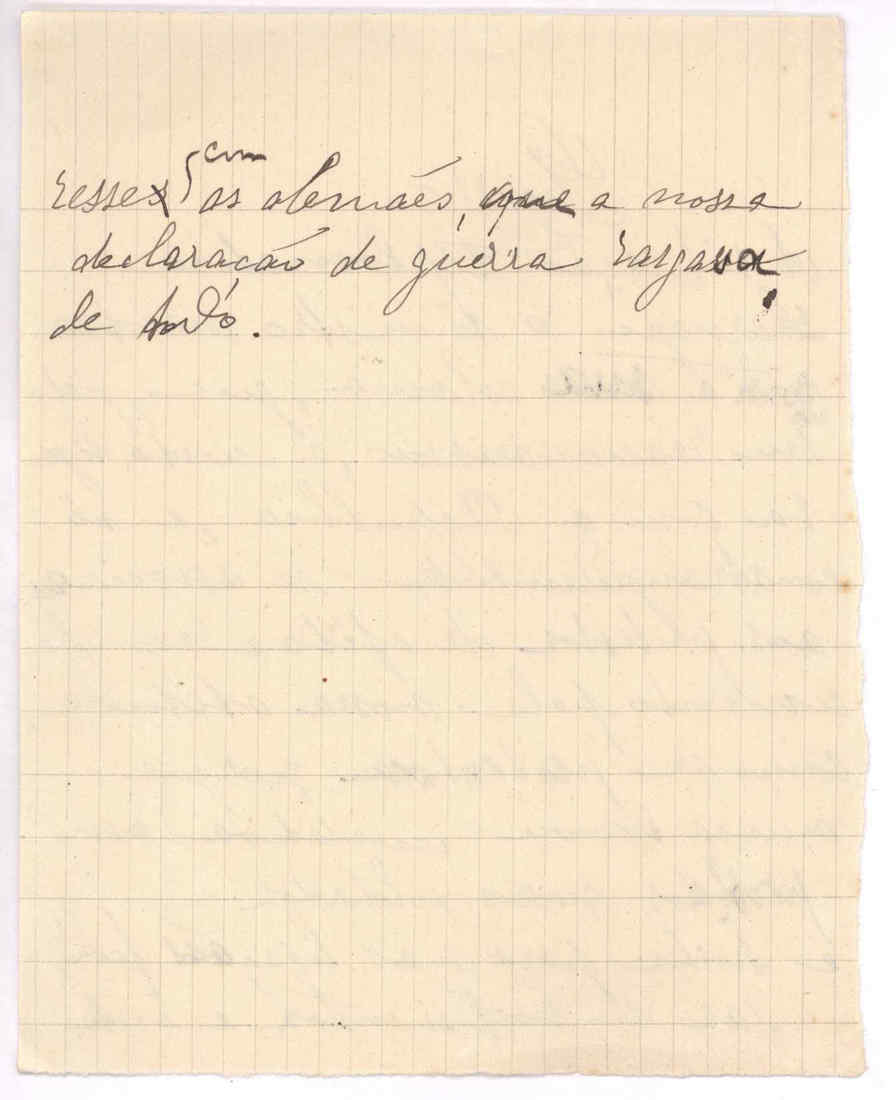 resses com os alemães, que a nossa
declaração de guerra rasgava
de